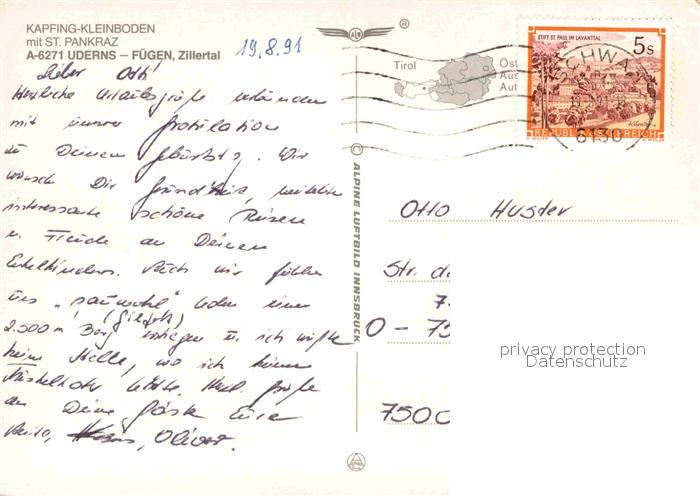 KAPFING-KLEINBODEN
mit ST. PANKRAZ
A-6271 UDERNS – FÜGEN, Zillertal
19.8.91
Lieber Otti!
Herzliche Urlaubsgrüße verbinden
mit unserer Gratulation
zu Deinem Geburtstg. Wir
wünsch Dir Gesundheit, weiterhin
interessante schöne Reisen
u. Freude an Deinen
Enkelkindern. Auch wir fühlen
uns "sauwohl"
2.500 m Berg (Gilfert) u. ich
keine Stelle, wo ich keinen
hätte. Herzl. Grüße
an Deine Gäste Eure
Oliver.
®
Tirol
Öst
Aut
Aut
STIFT ST. PAUL IM LAVANTTAL
5 s
REPUBLIK ÖSTERREICH
SCHWAZ
6130
© ALPINE LUFTBILD INNSBRUCK
Otto Huster
Str. d
7
D - 75
7500
privacy protection
Datenschutz